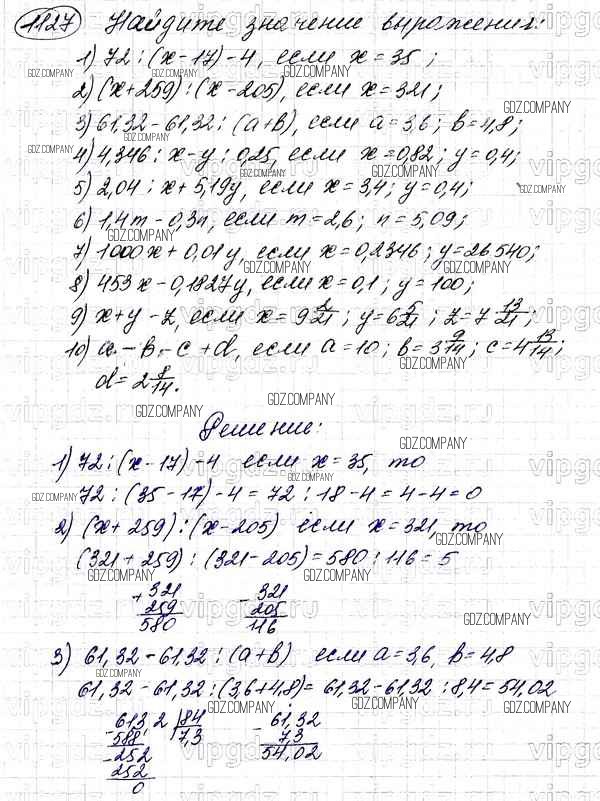 1127 Найдите значение выражения:
1) 72 : (x-17) - 4, если x = 35;
2) (x+259) : (x-205), если x = 321;
3) 61,32 - 61,32 : (a+b), если a = 3,6; b = 4,8;
4) 4,346 : x - y : 0,25, если x = 0,82; y = 0,4;
5) 2,04 : x + 5,19y, если x = 3,4; y = 0,4;
6) 1,4m - 0,3n, если m = 2,6; n = 5,09;
7) 1000x + 0,01y, если x = 0,2346; y = 26540;
8) 453x - 0,1827y, если x = 0,1; y = 100;
9) x + y - z, если x = 9 8/21; y = 6 5/21; z = 7 13/21;
10) a - b - c + d, если a = 10; b = 3 9/14; c = 4 13/14;
d = 2 8/14.
Решение:
1) 72 : (x-17) - 4 если x = 35, то
72 : (35 - 17) - 4 = 72 : 18 - 4 = 4 - 4 = 0
2) (x+259) : (x-205) если x = 321, то
(321 + 259) : (321 - 205) = 580 : 116 = 5
+ 321 - 321
259 205
580 116
3) 61,32 - 61,32 : (a+b) если a = 3,6, b = 4,8
61,32 - 61,32 : (3,6+4,8) = 61,32 - 61,32 : 8,4 = 54,02
- 613 2 | 84 - 61,32
588 7,3 7,3
- 252 54,02
252
0
GDZ.COMPANY
vipgdz.ru